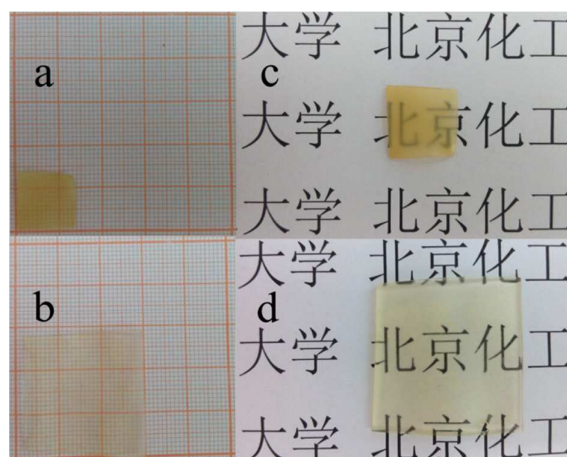 a
大学 北京化工
c
大学 北京化工
大学 北京化工
b
大学 北京化工
d
大学 北京化工
大学 北京化工